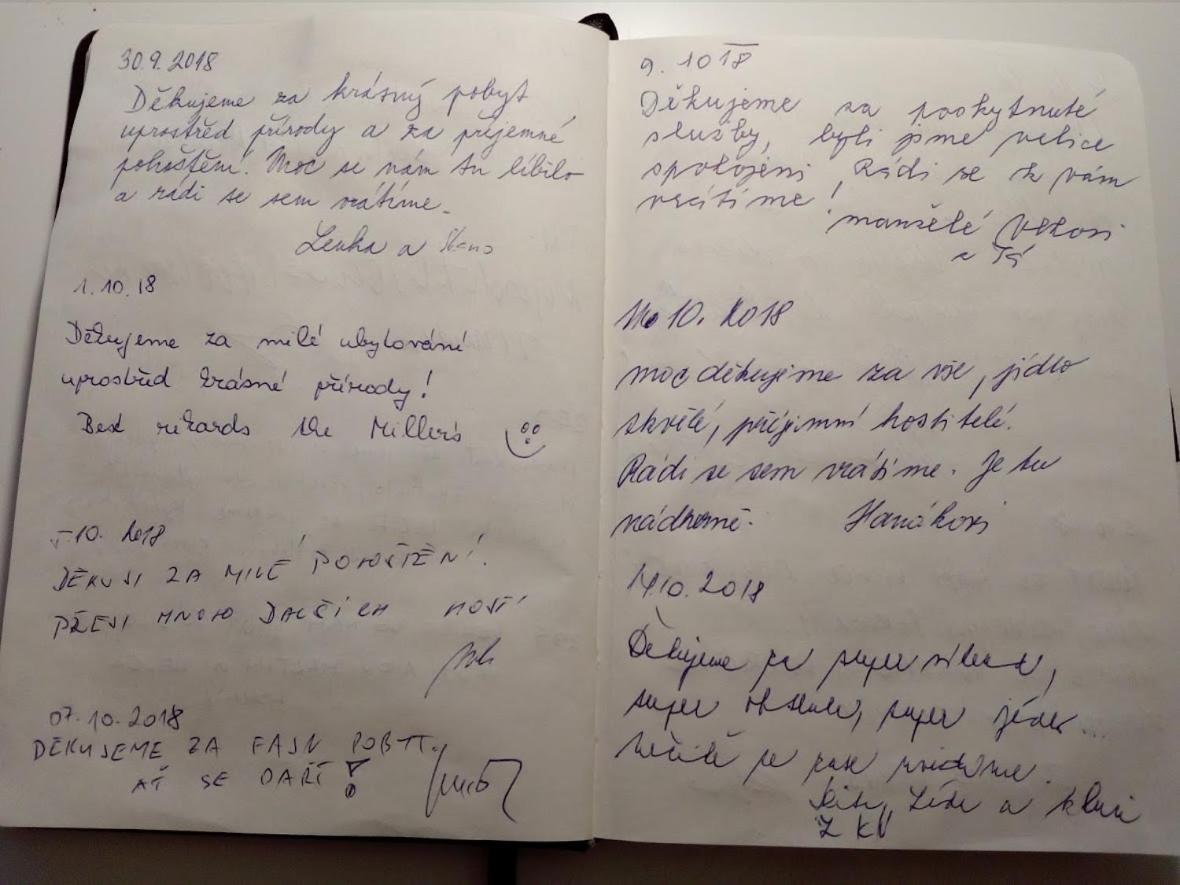 30.9.2018
Děkujeme za krásný pobyt
uprostřed přírody a za příjemné
pohoštění. Moc se nám tu líbilo
a rádi se sem vrátíme.
Lenka a
1.10.18
Děkujeme za milé ubytování
uprostřed krásné přírody!
Best regards The Millers
10. 2018
DĚKUJI ZA MILÉ POHOŠTĚNÍ.
PŘEJI MNOHO DALŠÍCH HOSTÍ
07.10.2018
DĚKUJEME ZA FAJN POBYT.
AŤ SE DAŘÍ!
9. 10 18
Děkujeme za poskytnuté
služby, byli jsme velice
spokojeni, Rádi se k vám
vrátíme!
manželé
a
10. 2018
moc děkujime za vše, jídlo
skvělé, příjimní hostitelé.
Rádi se sem vrátíme. Je tu
nádherně. Hanákovi
14.10.2018
Děkujeme za super
super obsluhu, super
Určitě se zase
a kluci
Z KV